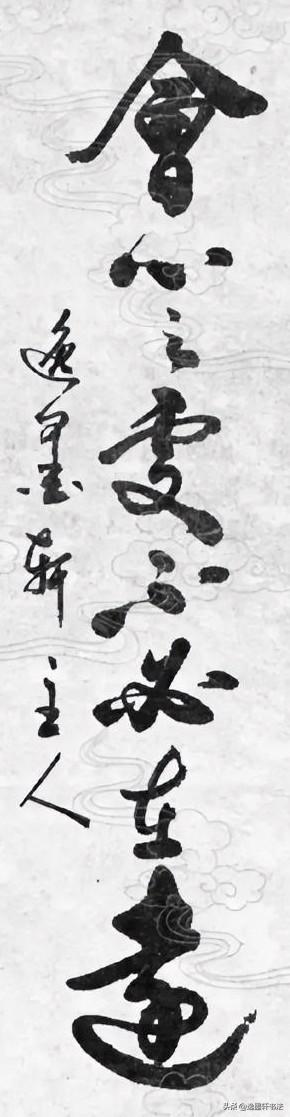 會心之處不必在遠
逸墨軒主人
头条@逸墨轩书法